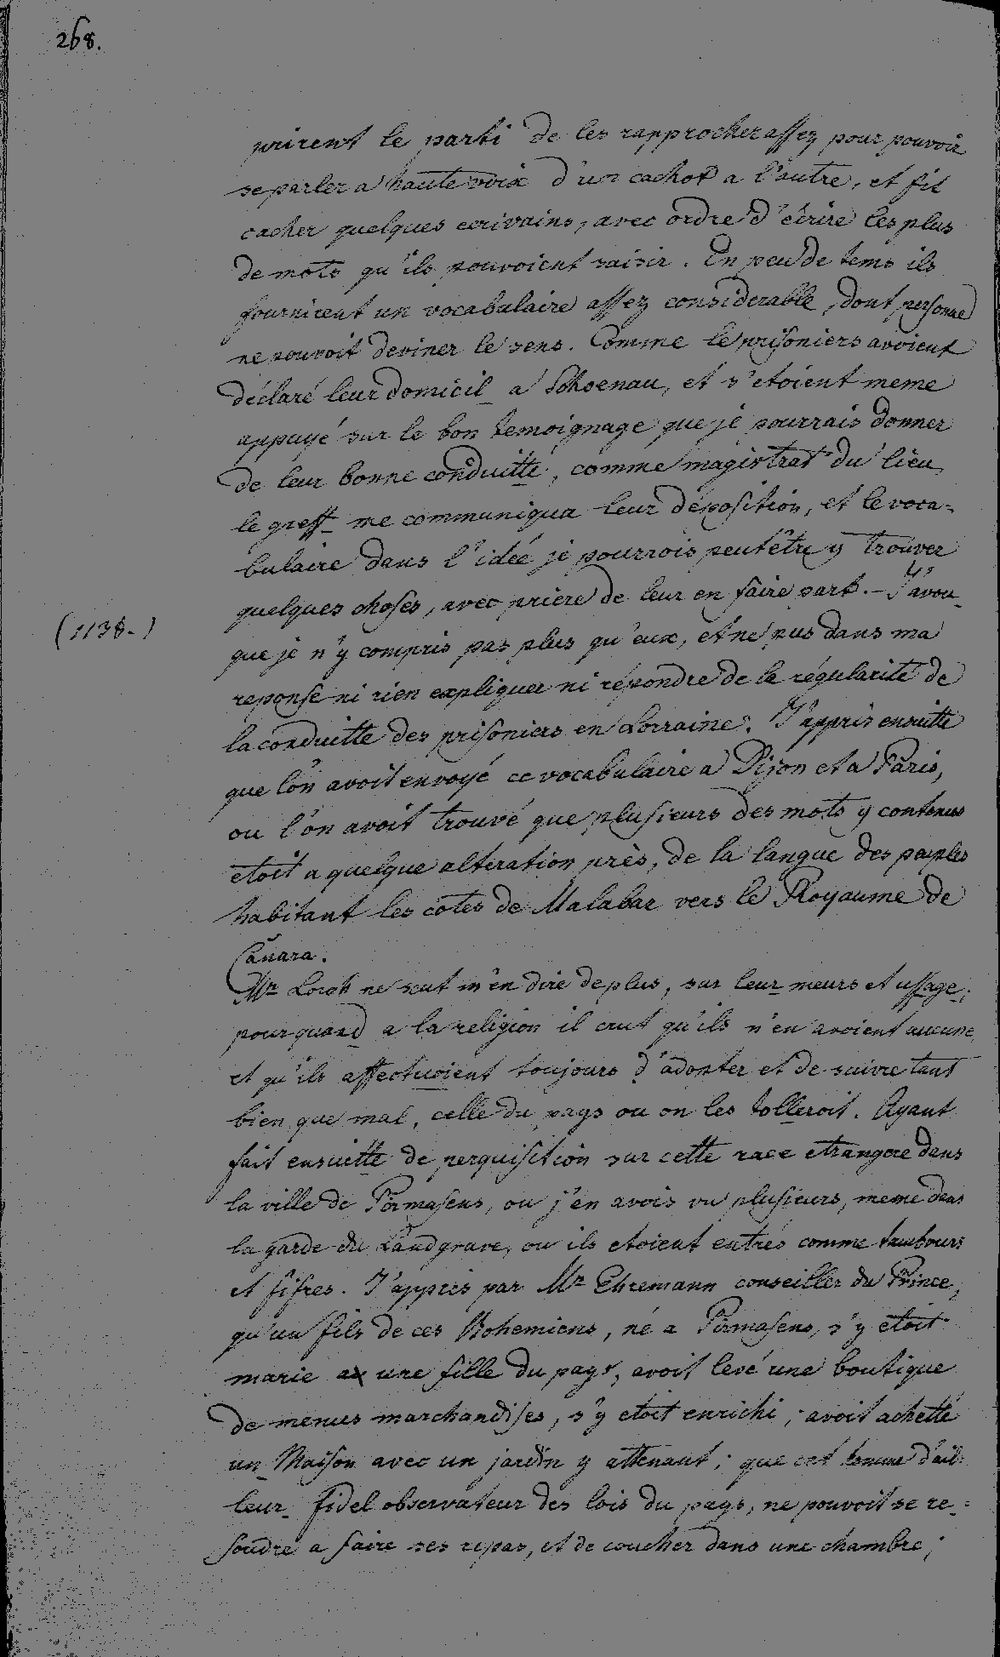 268.
prirent le parti de les rapprocher assez pour pouvoir
se parler a haute voix d'un cachot a l'autre, et fit
cacher quelques ecrivains, avec ordre d'écrire les plus
de mots qu'ils pouvoient saisir. En peu de tems ils
fournirent un vocabulaire assez considerable, dont personne
ne pouvoit deviner le sens. Comme le prisoniers avoient
déclaré leur domicil a Schoenau, et s'etoient meme
appuyé sur le bon temoignage que je pourrais donner
de leur bonne conduitte, comme magistrat du lieu,
le greff me communiqua leur déposition, et le voca-
bulaire dans l'idée je pourrois peutêtre y trouver
quelques choses, avec priere de leur en faire part. - J'avou
(1138.)
que je n'y compris pas plus qu'eux, et ne pus dans ma
reponse ni rien expliquer ni répondre de la régularité de
la conduitte des prisoniers en Lorraine. J'appris ensuitte
que l'on avoit envoyé ce vocabulaire a Dijon et a Paris,
ou l'on avoit trouvé que plusieurs des mots y contenus
etoit a quelque alteration près, de la langue des peuples
habitant les cotes de Malabar vers le Royaume de
Canara.
Mr. ne scut m'en dire de plus, sur leur meurs et ussage;
pour quand a la religion il crut qu'ils n'en avoient aucune
et qu'ils affectuoient toujours d'adopter et de suivre tant
bien que mal, celle du pays ou on les tolleroit. Ayant
fait ensuitte de perquisition sur cette race etrangere dans
la ville de Pirmasens, ou j'en avois vu plusieurs, meme dans
la garde du Landgrave, ou ils etoient entrés comme tambours
et fifres. J'appris par Mr. Ehremann conseiller du Prince,
qu'un fils de ces Bohemiens, né a Pirmasens, s'y etoit
marie a une fille du pays, avoit levé une boutique
de menues marchandises, s'y etoit enrichi; avoit achetté
un Maison avec un jardin y attenant; que cet homme d'ail-
leur fidel observateur des lois du pays, ne pouvoit se re-
soudre a faire ses repas, et de coucher dans une chambre;